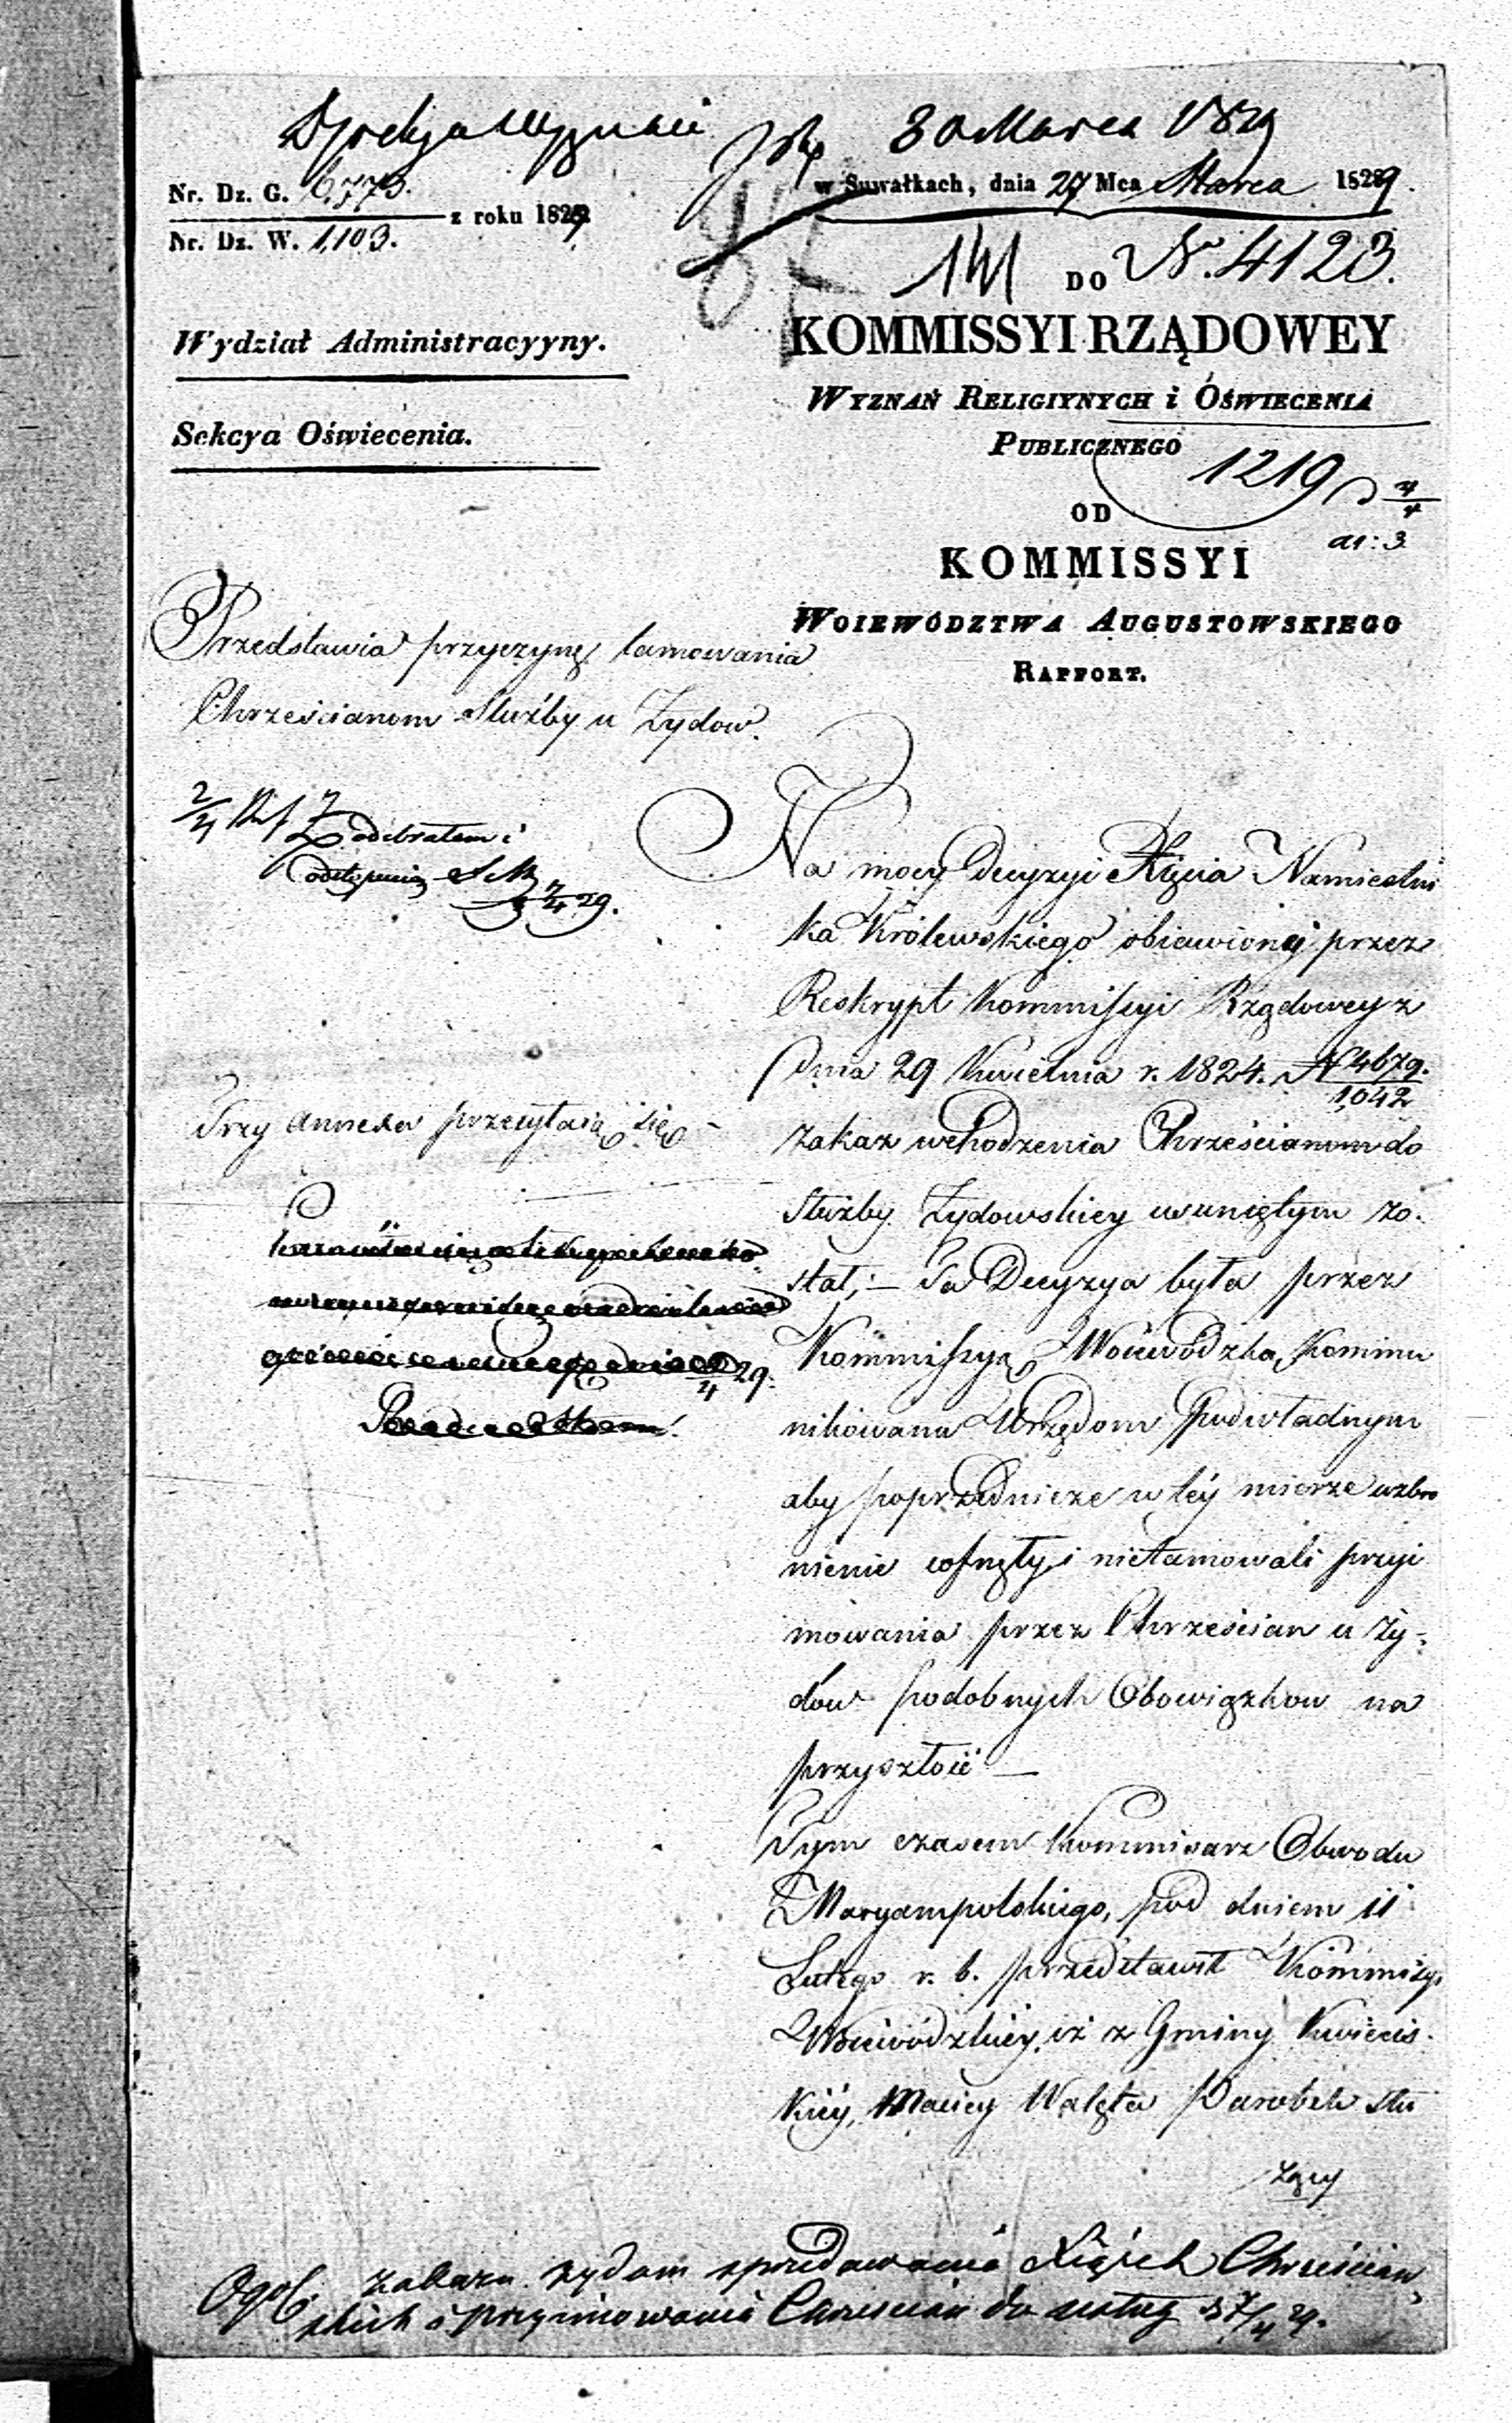 30 Marca 1829
Nr. Dz. G. 6,773.
z roku 1829
Nr. Dz. W. 1,103.
w Suwałkach, dnia 27 Mca Marca 1829.
141 DO N. 4123.
KOMMISSYI RZĄDOWEY
WYZNAŃ RELIGIYNYCH i OŚWIECENIA
PUBLICZNEGO
1219
OD
KOMMISSYI
WOIEWÓDZTWA AUGUSTOWSKIEGO
RAPPORT.
Wydział Administracyyny.
Sekcya Oświecenia.
Przedstawia przyczynę tamowania
Chrześcianom służby u Żydow.
odebrałem i
29.
Trzy annexa przecytaią się
29.
Na mocy Decyzyi Xięcia Namiestni
ka Królewskiego obiawioney przez
Reskrypt Kommissyi Rządowey z
Dnia 29 Kwietnia r. 1824. N 4679.
1,042
zakaz wchodzenia Chrześcianom do
służby Żydowskiey usuniętym zo-
stał; — Ta Decyzya była przez
Kommissyą Woiewódzką kommu
nikowana Urzędom Podwładnym
aby poprzednicze w téy mierze wzbro
nienie cofnęły, i nietamowali przyi
mowania przez Chrześcian u Ży-
dow podobnych Obowiązkow na
przyszłość —
Tym czasem Kommisarz Obwodu
Maryampolskiego, pod dniem 11
Lutego r. b. przedstawił Kommissyi
Woiewódzkiey, iż z Gminy Kwiecis-
kiéy, Maciey Walęta Parobek słu
żący
Ogól. zakazu żydom sprzedawania Xiążek Chrześcian
skich i przyimowania Chrzescian do usług